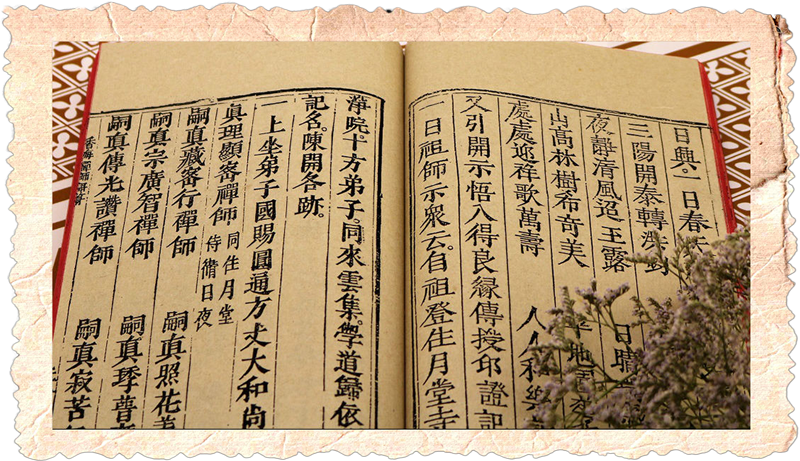 日興。一日春
三陽開泰轉 日晴
夜靜清風迢玉露
山高林樹希奇美
處處迎祥歌萬壽 人人和樂
又引開示悟入得良緣傳授印證記
一日祖師示眾云。自祖登住月堂寺
淨院。十方弟子。同來雲集。學道歸依
記名。陳開各跡。
一上坐弟子國賜圓通方丈大和尚
眞理顯密禪師 同住月堂 侍衛日夜
嗣眞藏密行禪師 嗣眞照花
嗣眞宗廣智禪師 嗣眞琫普
嗣眞傳光讚禪師 嗣眞寂苦